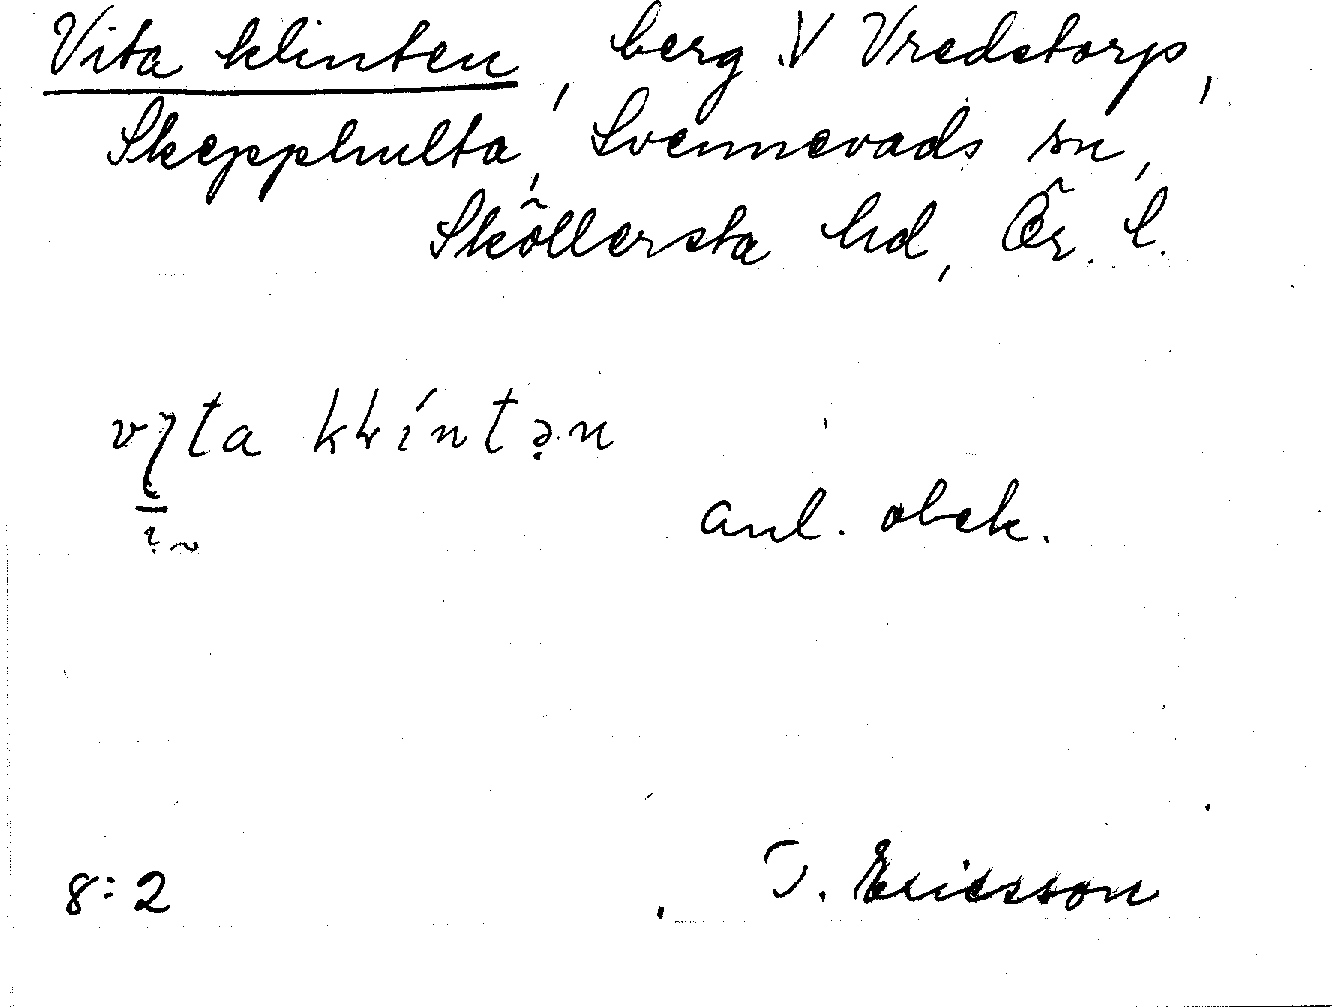 Vita klinten, berg V Vredstorp,
Skepphulta, Svennevads sn,
Sköllersta hd, Ör. l.
anl. obek.
8:2
Ericsson